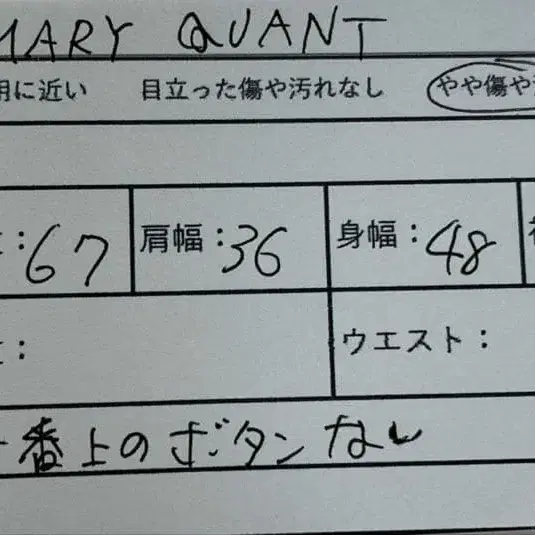 MARY QUANT
用に近い 目立った傷や汚れなし やや傷や
: 67 肩幅 : 36 身幅 : 48
: ウエスト :
一番上のボタンなし